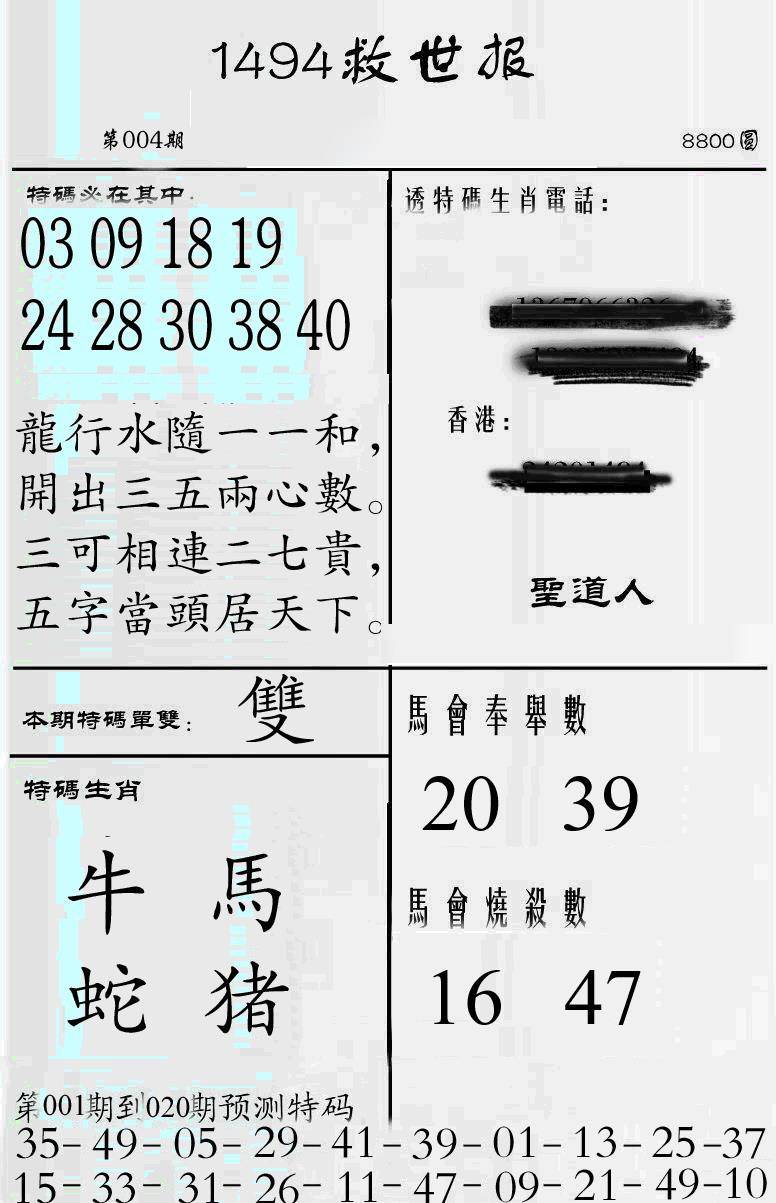 1494救世报
第004期
8800圓
特碼必在其中:
03 09 18 19
24 28 30 38 40
龍行水隨一一和，
開出三五兩心數。
三可相連二七貴，
五字當頭居天下。
透特碼生肖電話:
香港:
聖道人
本期特碼單雙: 雙
特碼生肖
牛 馬
蛇 猪
馬會奉舉數
20 39
馬會燒殺數
16 47
第001期到020期预测特码
35-49-05-29-41-39-01-13-25-37
15-33-31-26-11-47-09-21-49-10